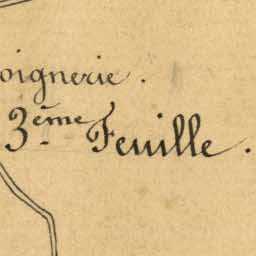 oignerie.
3ème Feuille.